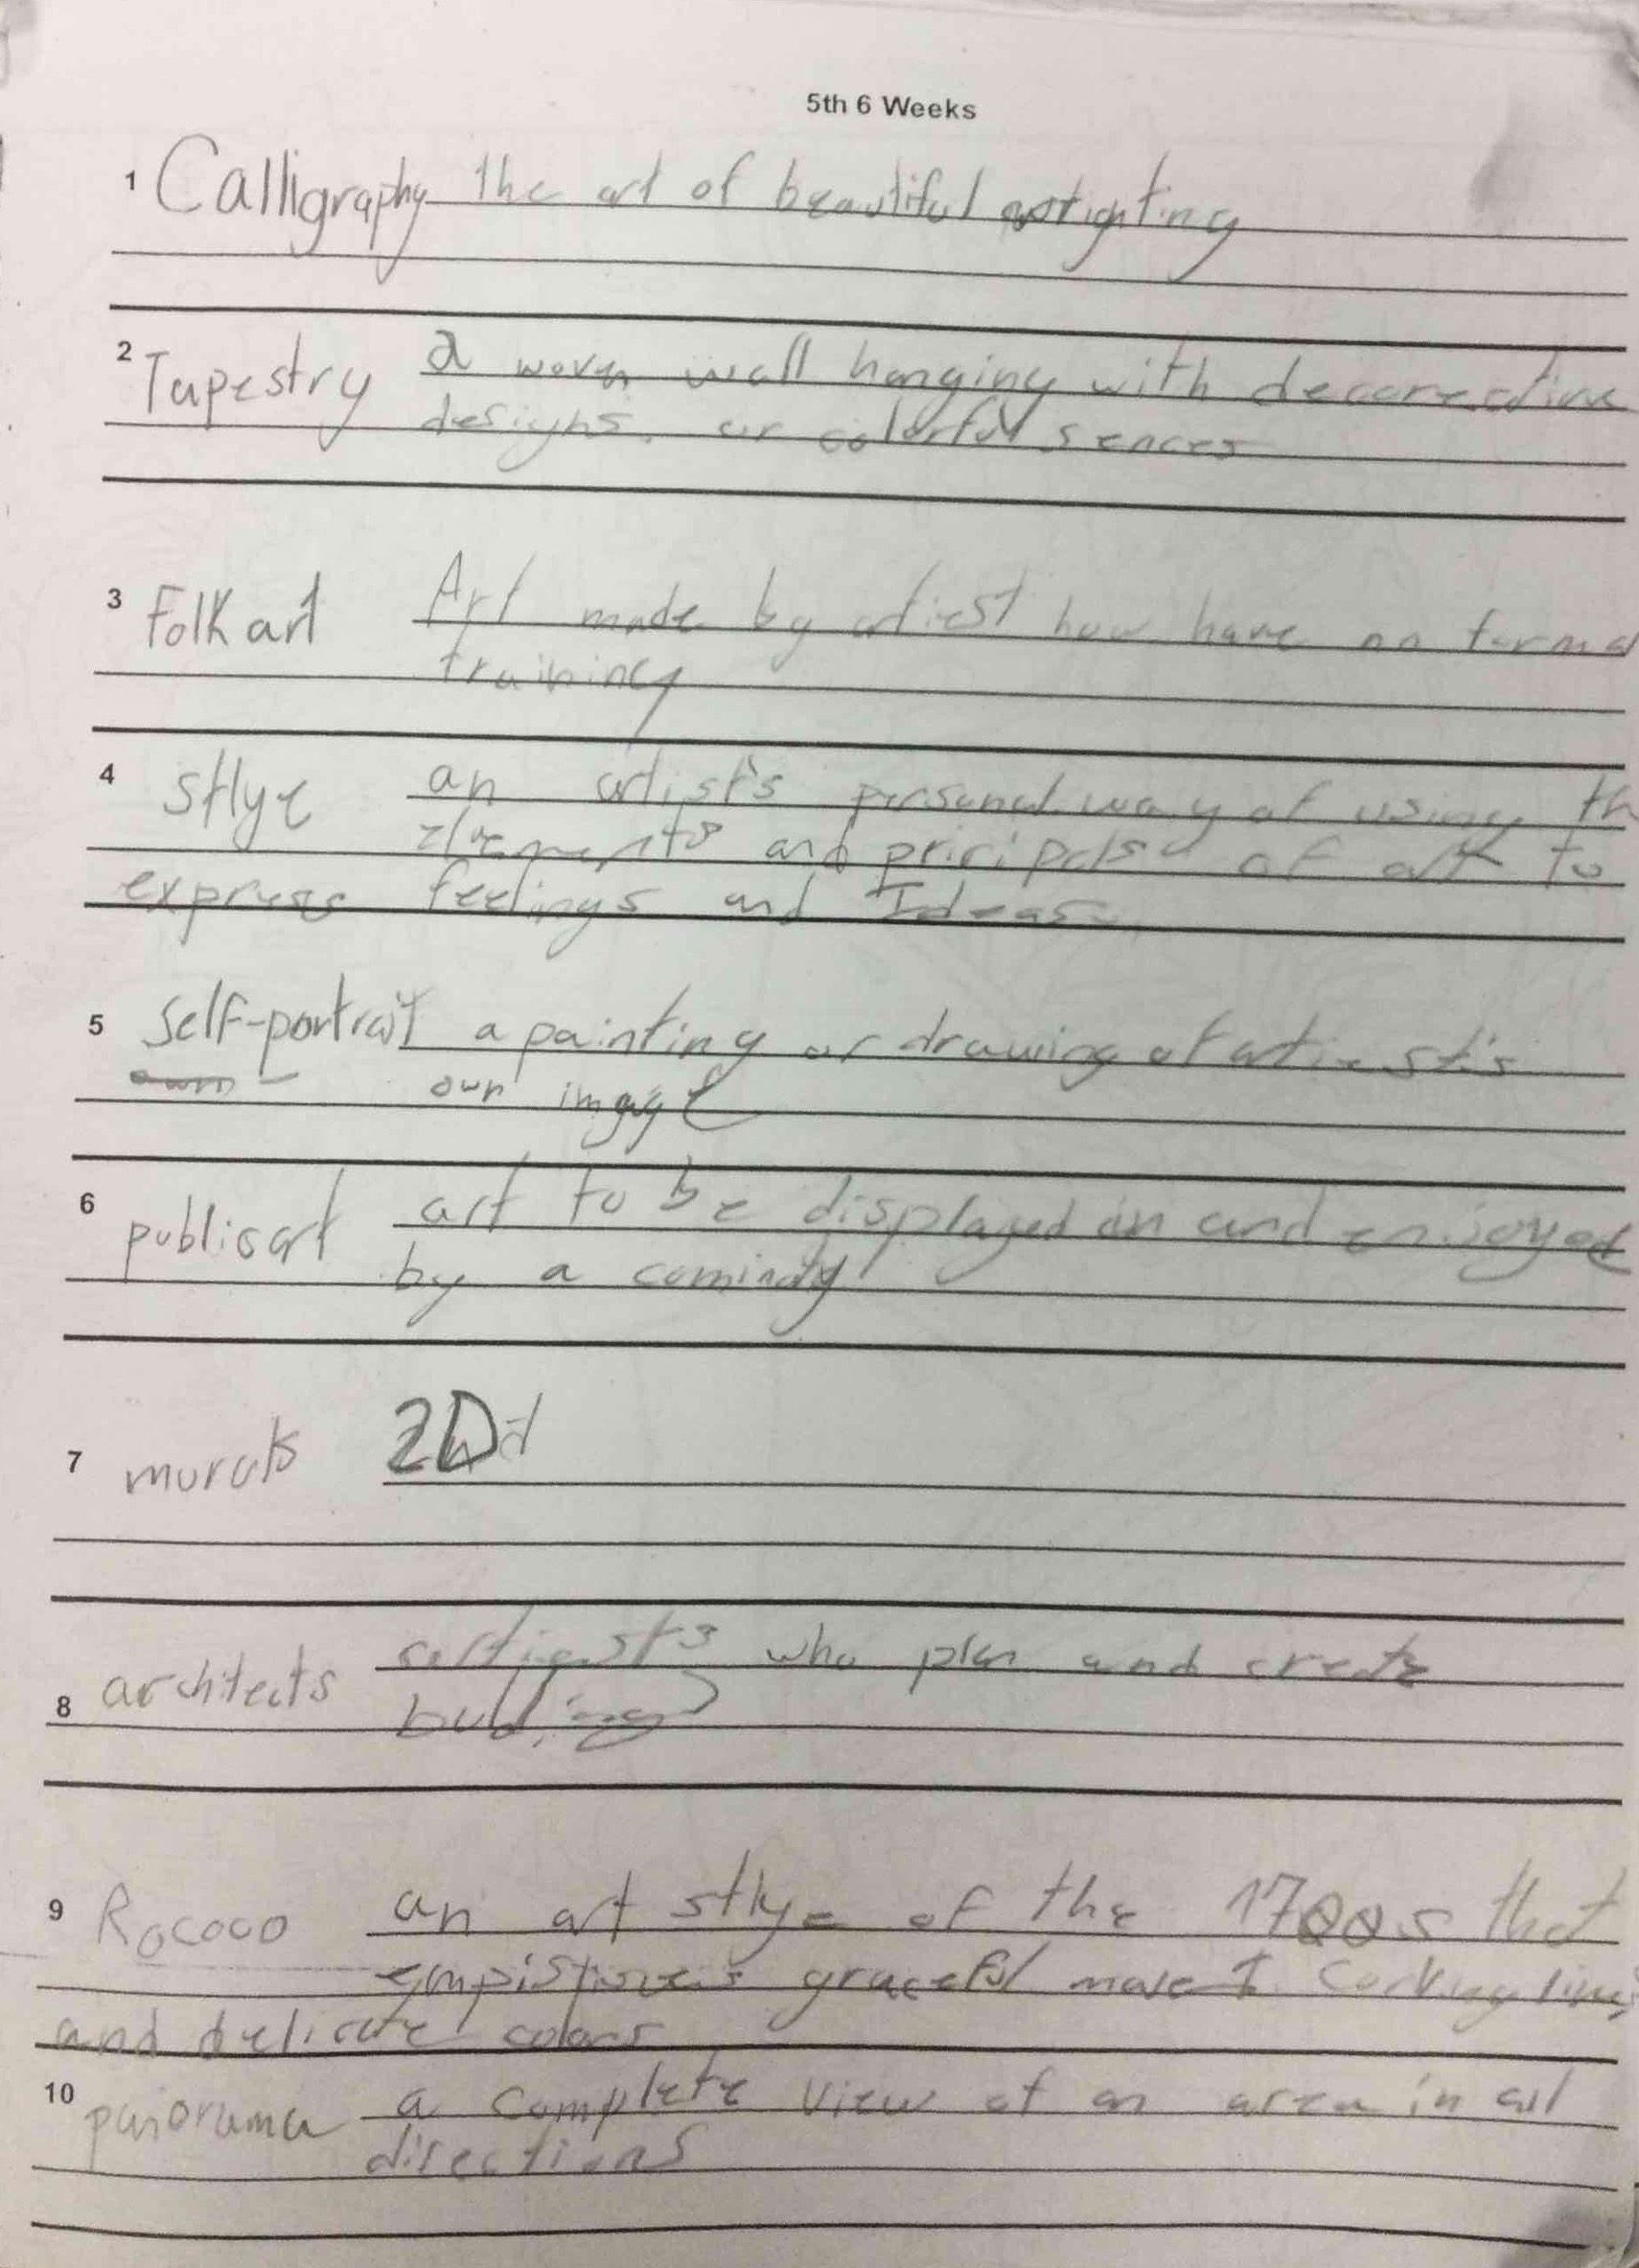 5th 6 Weeks
1 Calligraphy the art of beautiful
2 Tapestry a woven wall hanging with
designs. or colorful sences
3 Folk art Art made by artiest how have no formal
training
4 stlye an artist's personal way of using th
elements and pricipals of art to
express feelings and Ideas
5 Self-portrait a painting or drawing of artiest's
own image
6 publicart art to be displayed in and enjoyed
by a
7 murals 2D
8 architects who plan and create
9 Rococo an art stlye of the 1700s that
graceful
and delicate colors
10 a complete view of an area in all
directions